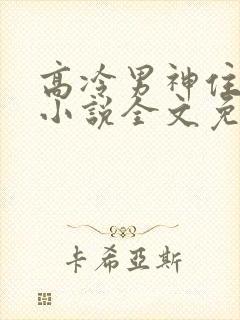 高冷男神住
小说全文免
卡希亞斯